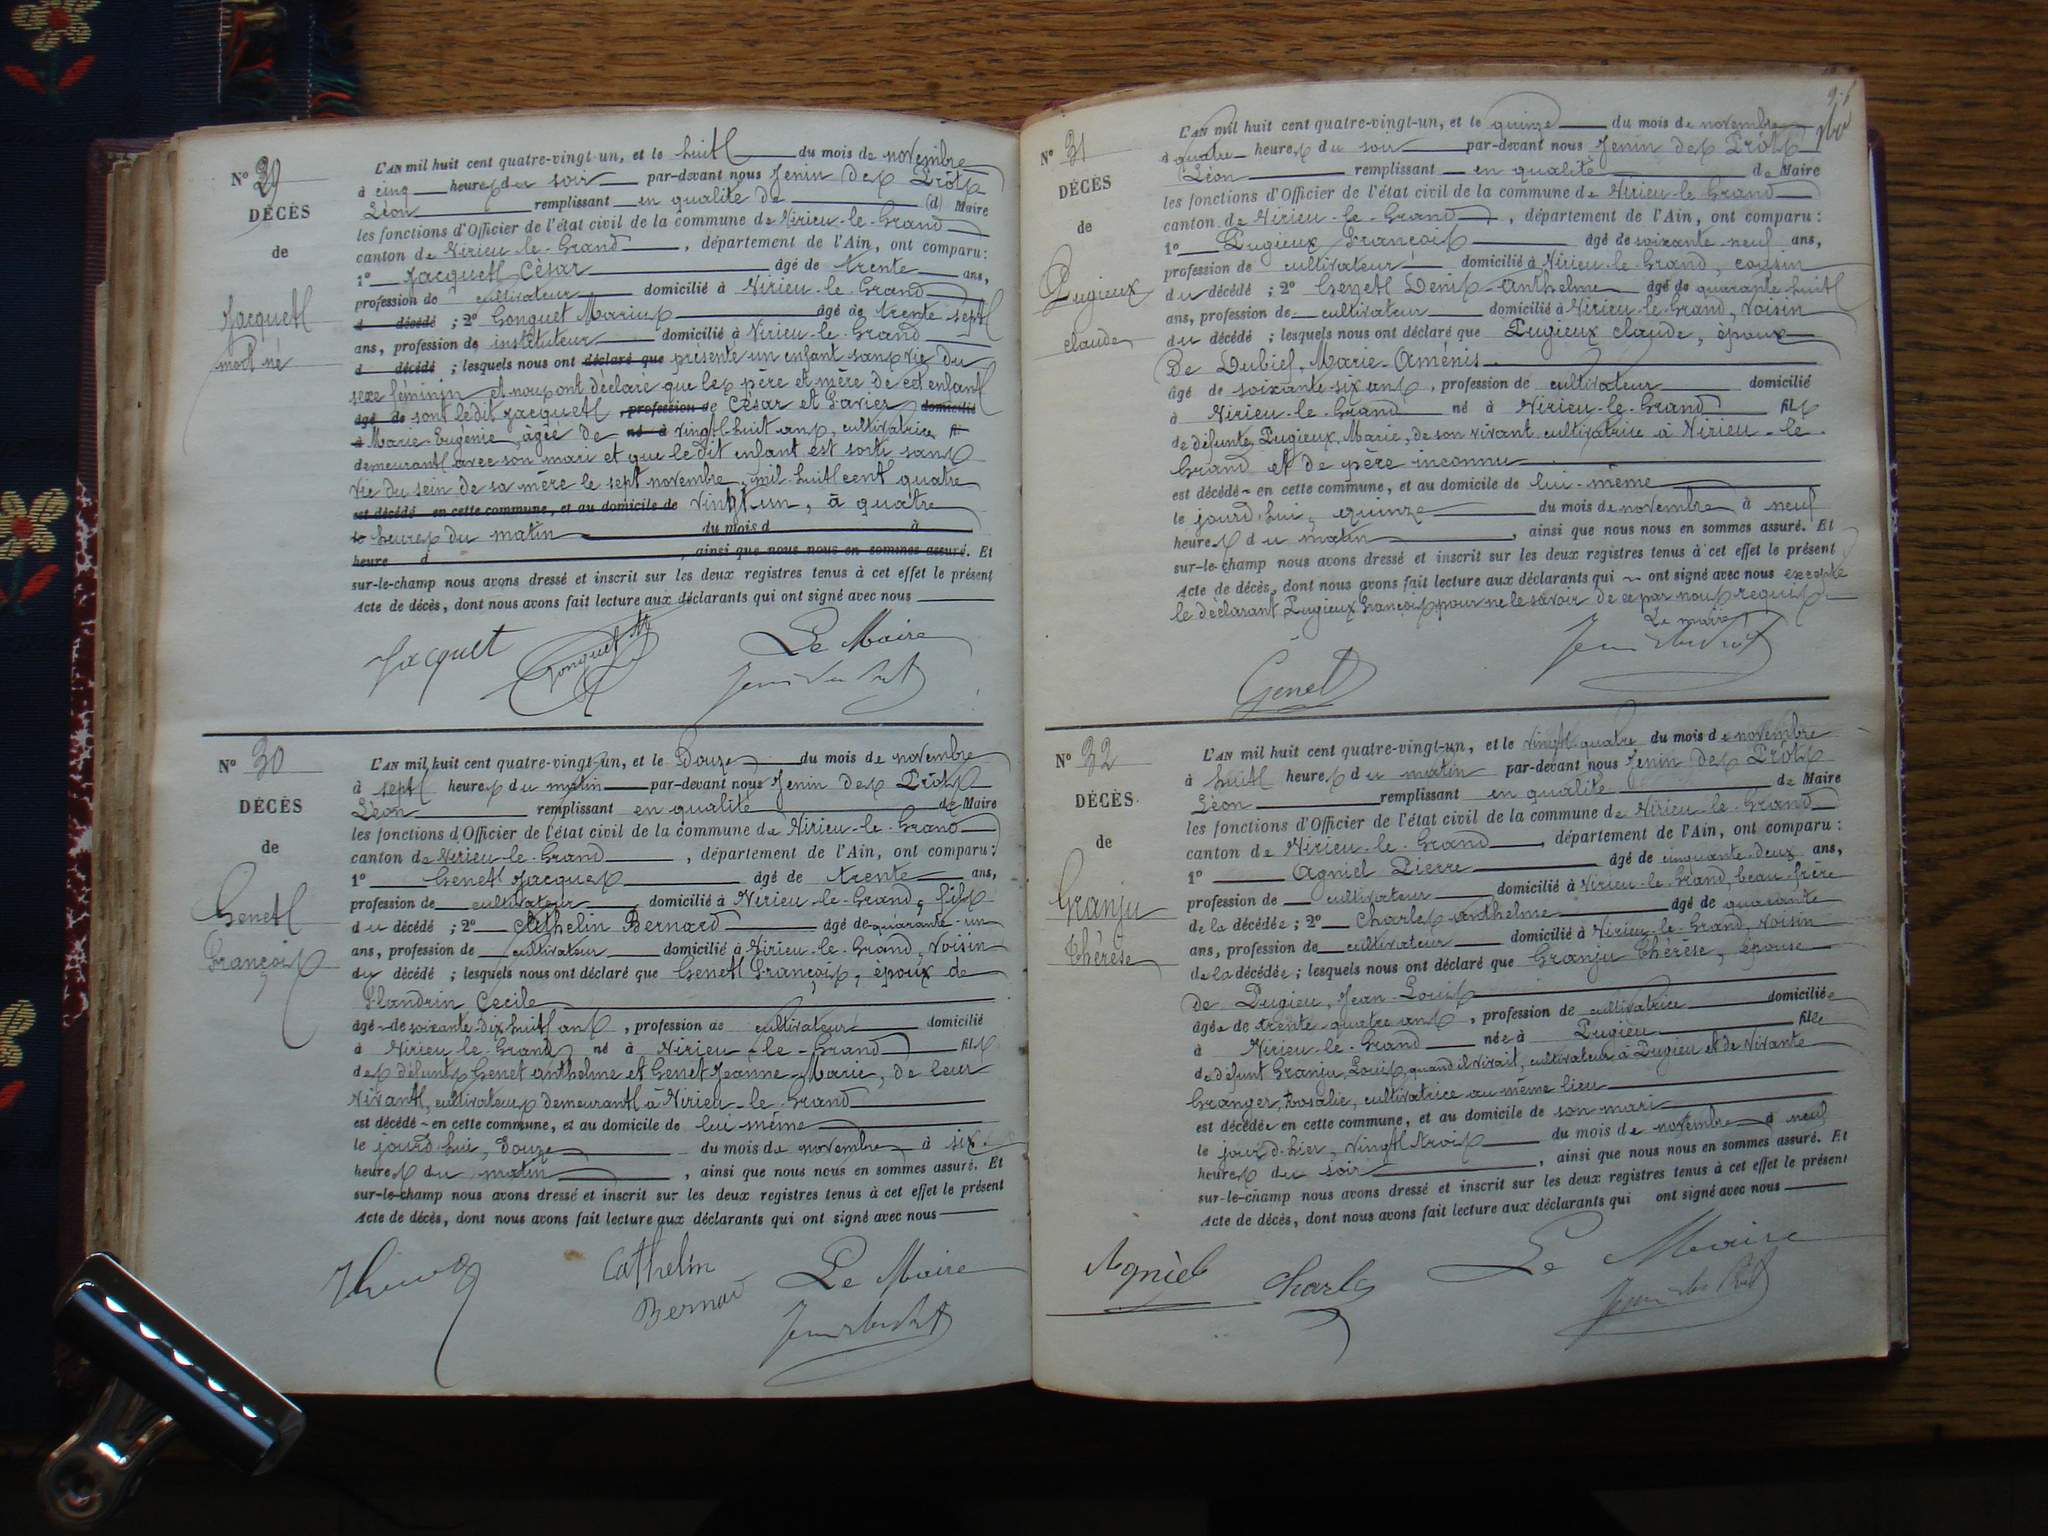 N° 29
DÉCÈS
de
Jacquet
mort né
L'AN mil huit cent quatre-vingt-un, et le huit du mois de novembre
à cinq heures du soir par-devant nous Jenin des Prôts
Léon remplissant en qualité de (d) Maire
les fonctions d'Officier de l'état civil de la commune de Virieu-le-Grand
canton de Virieu-le-Grand, département de l'Ain, ont comparu:
1° Jacquet César âgé de trente ans,
profession de cultivateur domicilié à Virieu-le-Grand
d décédé ; 2° Gonguet Marius âgé de trente-sept
ans, profession de instituteur domicilié à Virieu-le-Grand
d décédé ; lesquels nous ont déclaré que présenté un enfant sans vie du
sexe féminin et nous ont déclaré que les père et mère de cet enfant
âgé de sont le dit Jacquet, profession de César et Gavier domicilié
à Marie-Eugénie, âgée de né à vingt huit ans, cultivatrice fi
demeurant avec son mari et que le dit enfant est sorti sans
vie du sein de sa mère le sept novembre, mil-huit cent quatre
est décédé en cette commune, et au domicile de vingt-un, à quatre
le heures du matin du mois d à
heure d , ainsi que nous nous en sommes assuré. Et
sur-le-champ nous avons dressé et inscrit sur les deux registres tenus à cet effet le présent
Acte de décès, dont nous avons fait lecture aux déclarants qui ont signé avec nous
Jacquet Gonguet Le Maire
Jenin des Prôts
N° 30
DÉCÈS
de
Genet
François
L'AN mil huit cent quatre-vingt-un, et le Douze du mois de novembre
à sept heures du matin par-devant nous Jenin des Prôts
Léon remplissant en qualité de Maire
les fonctions d'Officier de l'état civil de la commune de Virieu-le-Grand
canton de Virieu-le-Grand, département de l'Ain, ont comparu:
1° Genet Jacques âgé de trente ans,
profession de cultivateur domicilié à Virieu-le-Grand, fils
du décédé ; 2° Cathelin Bernard âgé de quarante-un
ans, profession de cultivateur domicilié à Virieu-le-Grand, voisin
du décédé ; lesquels nous ont déclaré que Genet François, époux de
Flandrin Cecile
âgé de soixante-dix huit ans, profession de cultivateur domicilié
à Virieu-le-Grand né à Virieu-le-Grand fils
des défunts Genet Anthelme et Genet Jeanne-Marie, de leur
vivant, cultivateurs demeurant à Virieu-le-Grand
est décédé en cette commune, et au domicile de lui-même
le jourd'hui, Douze du mois de novembre à six
heures du matin, ainsi que nous nous en sommes assuré. Et
sur-le-champ nous avons dressé et inscrit sur les deux registres tenus à cet effet le présent
Acte de décès, dont nous avons fait lecture aux déclarants qui ont signé avec nous
Cathelin Le Maire
Bernard Jenin des Prôts
N° 31
DÉCÈS
de
Pugieux
claude
L'AN mil huit cent quatre-vingt-un, et le quinze du mois de novembre
à quatre heures du soir par-devant nous Jenin des Prôts
Léon remplissant en qualité de Maire
les fonctions d'Officier de l'état civil de la commune de Virieu-le-Grand
canton de Virieu-le-Grand, département de l'Ain, ont comparu:
1° Pugieux François âgé de soixante-neuf ans,
profession de cultivateur domicilié à Virieu-le-Grand, cousin
du décédé ; 2° Genet Denis-Anthelme âgé de quarante huit
ans, profession de cultivateur domicilié à Virieu-le-Grand, voisin
du décédé ; lesquels nous ont déclaré que Pugieux claude, époux
De Dubief, Marie-Aménis
âgé de soixante-six ans, profession de cultivateur domicilié
à Virieu-le-Grand né à Virieu-le-Grand fils
de défunte Pugieux Marie, de son vivant cultivatrice à Virieu-le-
Grand et de père inconnu
est décédé en cette commune, et au domicile de lui-même
le jourd'hui, quinze du mois de novembre à neuf
heures du matin, ainsi que nous nous en sommes assuré. Et
sur-le-champ nous avons dressé et inscrit sur les deux registres tenus à cet effet le présent
Acte de décès, dont nous avons fait lecture aux déclarants qui ont signé avec nous excepté
le déclarant Pugieux François pour ne le savoir de ce par nous requis
Le maire
Genet Jenin des Prôts
N° 32
DÉCÈS
de
Granju
Thérèse
L'AN mil huit cent quatre-vingt-un, et le vingt quatre du mois de novembre
à huit heures du matin par-devant nous Jenin des Prôts
Léon remplissant en qualité de Maire
les fonctions d'Officier de l'état civil de la commune de Virieu-le-Grand
canton de Virieu-le-Grand, département de l'Ain, ont comparu:
1° Agniel Pierre âgé de cinquante-deux ans,
profession de cultivateur domicilié à Virieu-le-Grand, beau-frère
de la décédée ; 2° Charles Anthelme âgé de quarante
ans, profession de cultivateur domicilié à Virieu-le-Grand, voisin
de la décédée ; lesquels nous ont déclaré que Granju Thérèse, épouse
de Pugieu, Jean-Louis
âgée de trente-quatre ans, profession de cultivatrice domiciliée
à Virieu-le-Grand née à Pugieu fille
de défunt Granju, Louis, quand il vivait, cultivateur à Pugieu et de vivante
Granger, Rosalie, cultivatrice au même lieu
est décédée en cette commune, et au domicile de son mari
le jour d'hier, vingt trois du mois de novembre à neuf
heures du soir, ainsi que nous nous en sommes assuré. Et
sur-le-champ nous avons dressé et inscrit sur les deux registres tenus à cet effet le présent
Acte de décès, dont nous avons fait lecture aux déclarants qui ont signé avec nous
Agniel Charles Le Maire
Jenin des Prôts